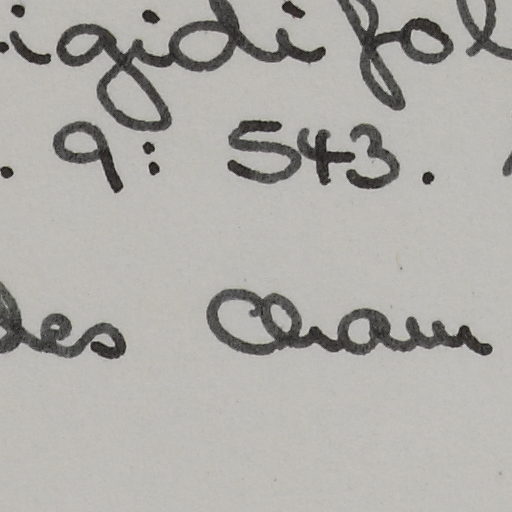 igidifol
. 9: 543.
des Cham